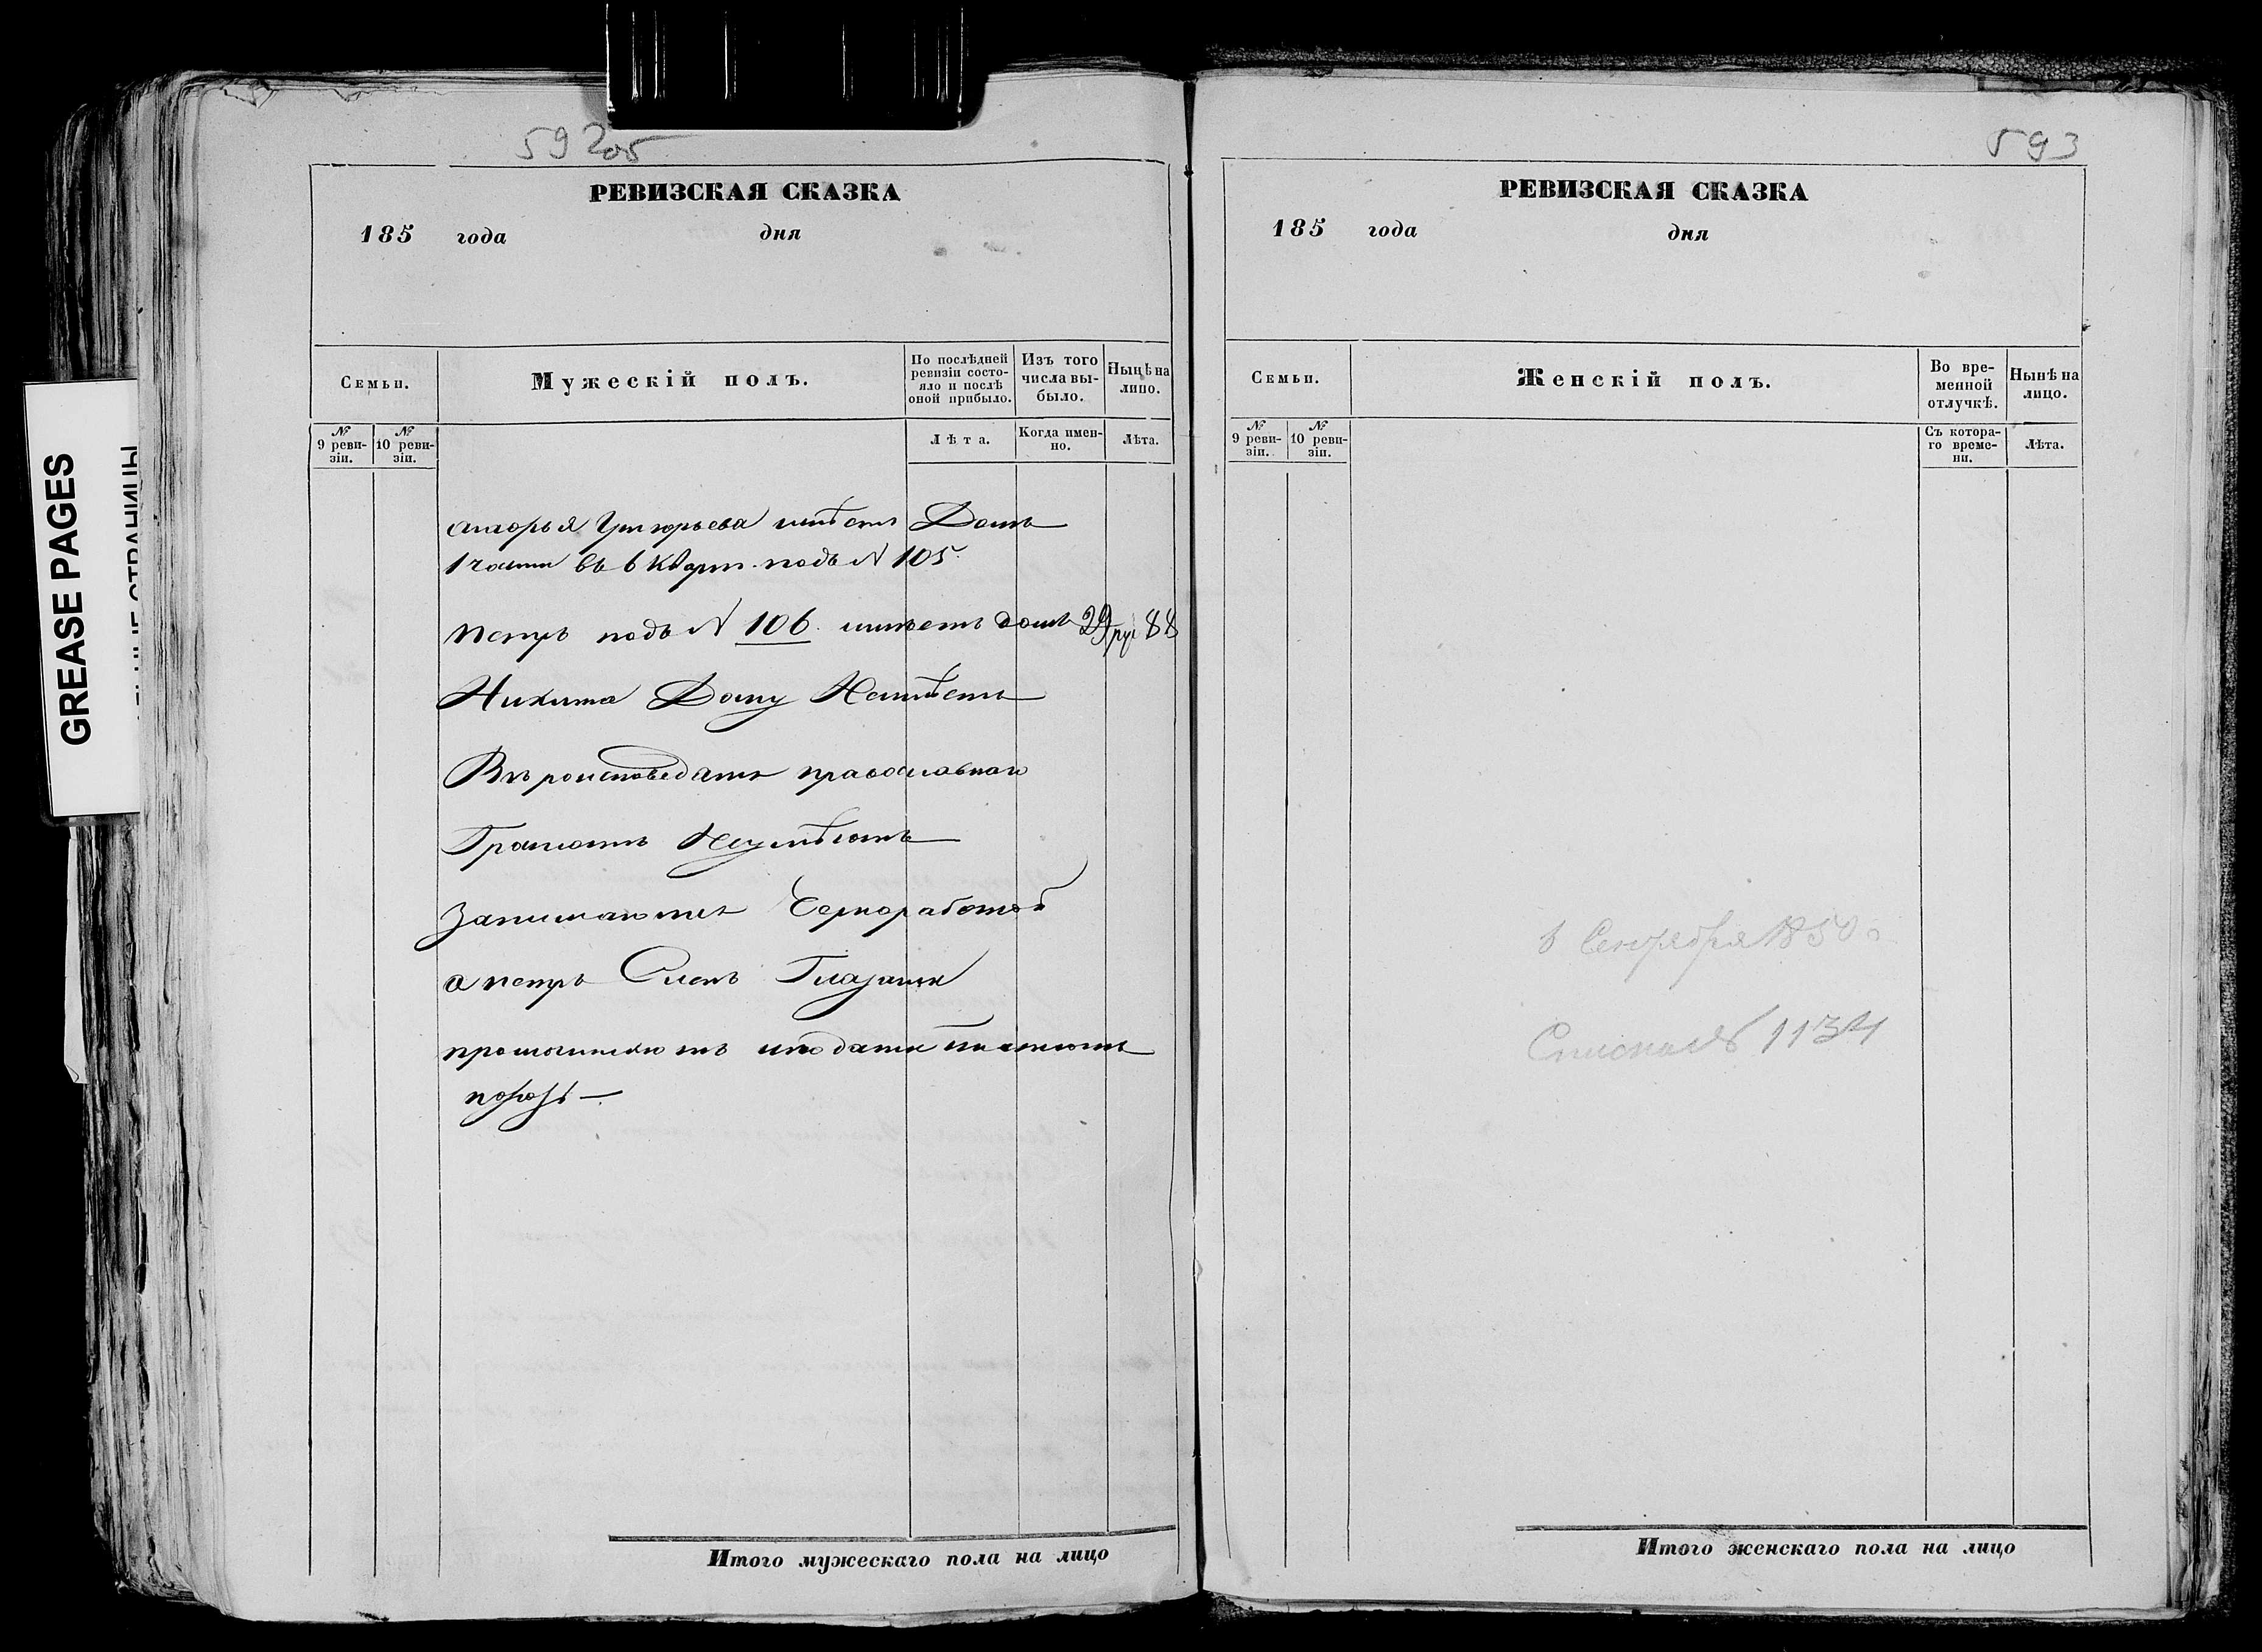 GREASE PAGES
592об
РЕВИЗСКАЯ СКАЗКА
185 года дня
Семьи.
Мужескій полъ.
По послѣдней ревизіи состояло и послѣ оной прибыло.
Изъ того числа выбыло.
Нынѣ на лицо.
№ 9 ревизіи.
№ 10 ревизіи.
Лѣта.
Когда именно.
Лѣта.
Григорьева имѣетъ Домъ
1 части въ 6 Кварт. подъ N 105.
Петръ подъ N 106. имѣетъ домъ 29 ру 88
Никита Дому Неимѣетъ
Вѣроисповеданія православнаго
Грамотѣ Неумѣютъ
Занимаются Чорноработой
а петръ Сынъ
промышляютъ платятъ
порознь —
Итого мужескаго пола на лицо
593
РЕВИЗСКАЯ СКАЗКА
185 года дня
Семьи.
Женскій полъ.
Во временной отлучкѣ.
Нынѣ на лицо.
№ 9 ревизіи.
№ 10 ревизіи.
Съ котораго времени.
Лѣта.
Сентября 1850
1134
Итого женскаго пола на лицо